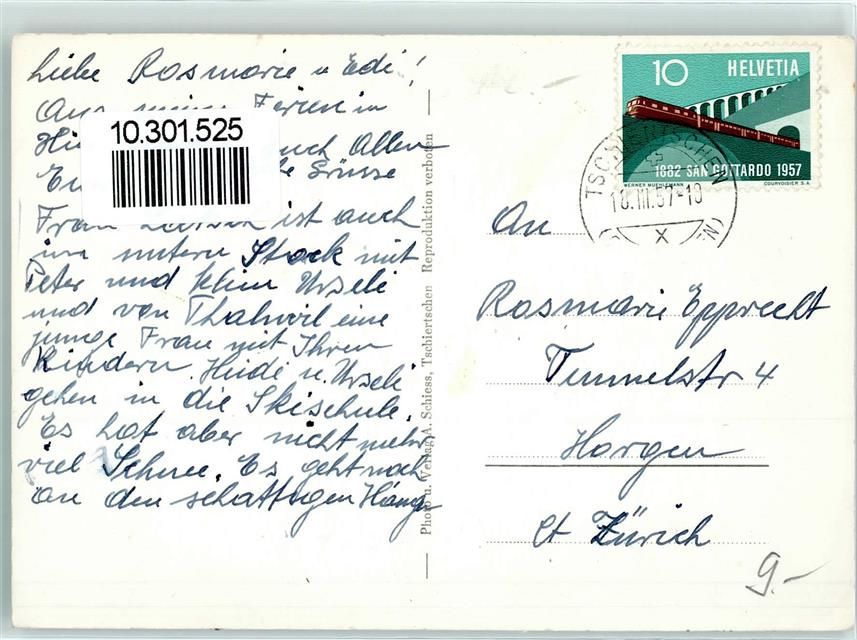 Liebe Rosmarie u Edi!
Aus meinen Ferien in
auch Allen
Grüsse
Frau ist auch
im untern Stock mit
Peter und klein Urseli
und von Thalwil eine
junge Frau mit Ihren
Kindern. Heidi u. Urseli
gehen in die Skischule.
Es hat aber nicht mehr
viel Schnee. Es geht noch
an den schattigen Häng
10.301.525
Photo u. Verlag A. Schiess, Tschiertschen Reproduktion verboten
10 HELVETIA
1882 SAN GOTTARDO 1957
WERNER MUEHLEMANN COURVOISIER S.A.
TSCHIERTSCHEN
X
An
Rosmarie Epprecht
Tunnelstr 4
Horgen
Ct Zürich
9.-